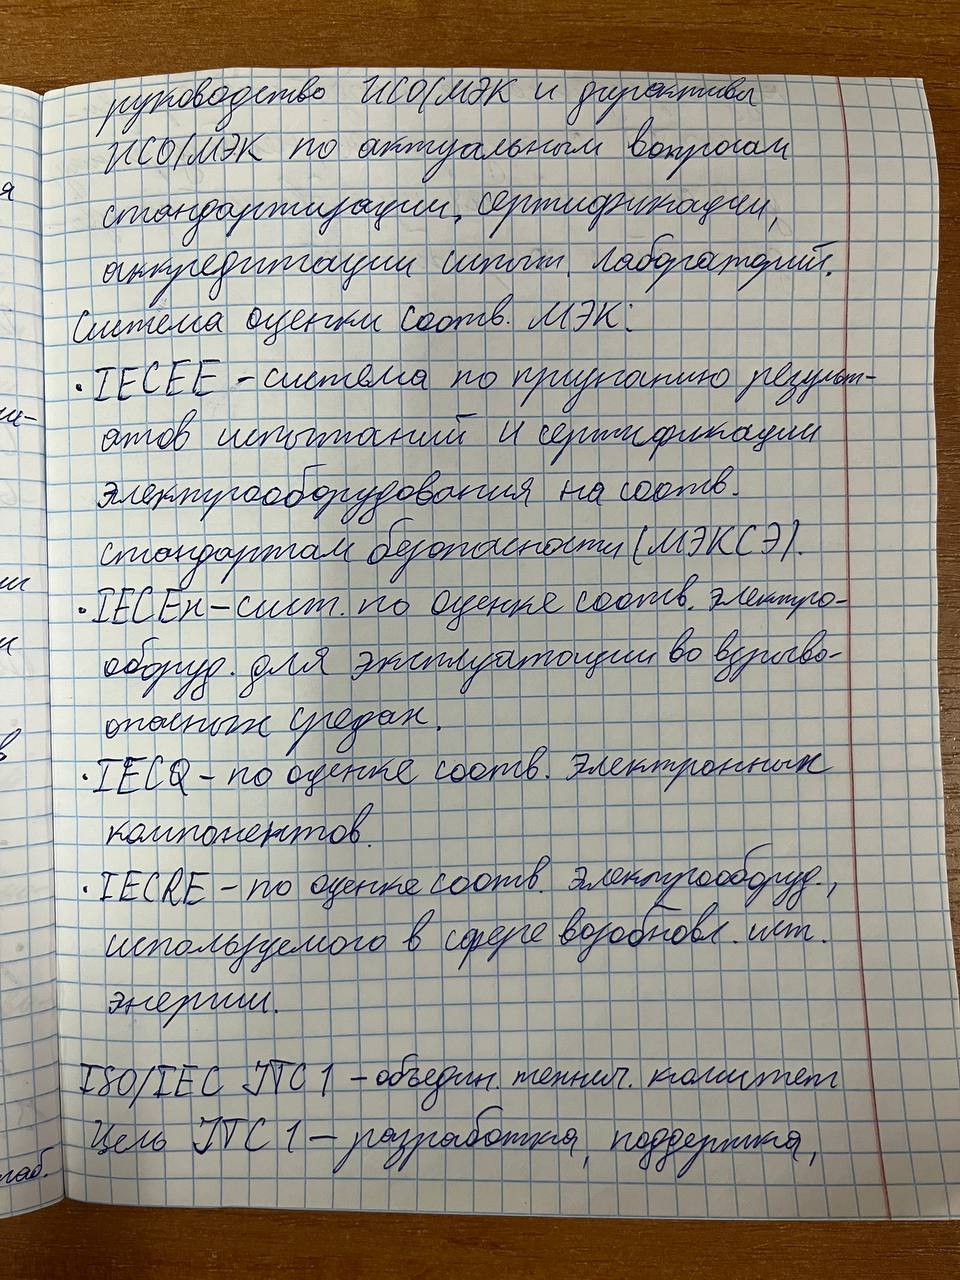 руководство ИСО/МЭК и директивы
ИСО/МЭК по актуальным вопросам
стандартизации, сертификации,
аккредитации испыт. лабораторий.
Система оценки соотв. МЭК:
• IECEE – система по признанию результ-
атов испытаний и сертификации
электрооборудования на соотв.
стандартам безопасности (МЭКСЭ).
• IECEx – сист. по оценке соотв. электро-
оборуд. для эксплуатации во взрыво-
опасных средах.
• IECQ – по оценке соотв. электронных
компонентов.
• IECRE – по оценке соотв. электрооборуд.,
используемого в сфере возобновл. ист.
энергии.
ISO/IEC JTC 1 – объедин. технич. комитет
Цель JTC 1 – разработка, поддержка,